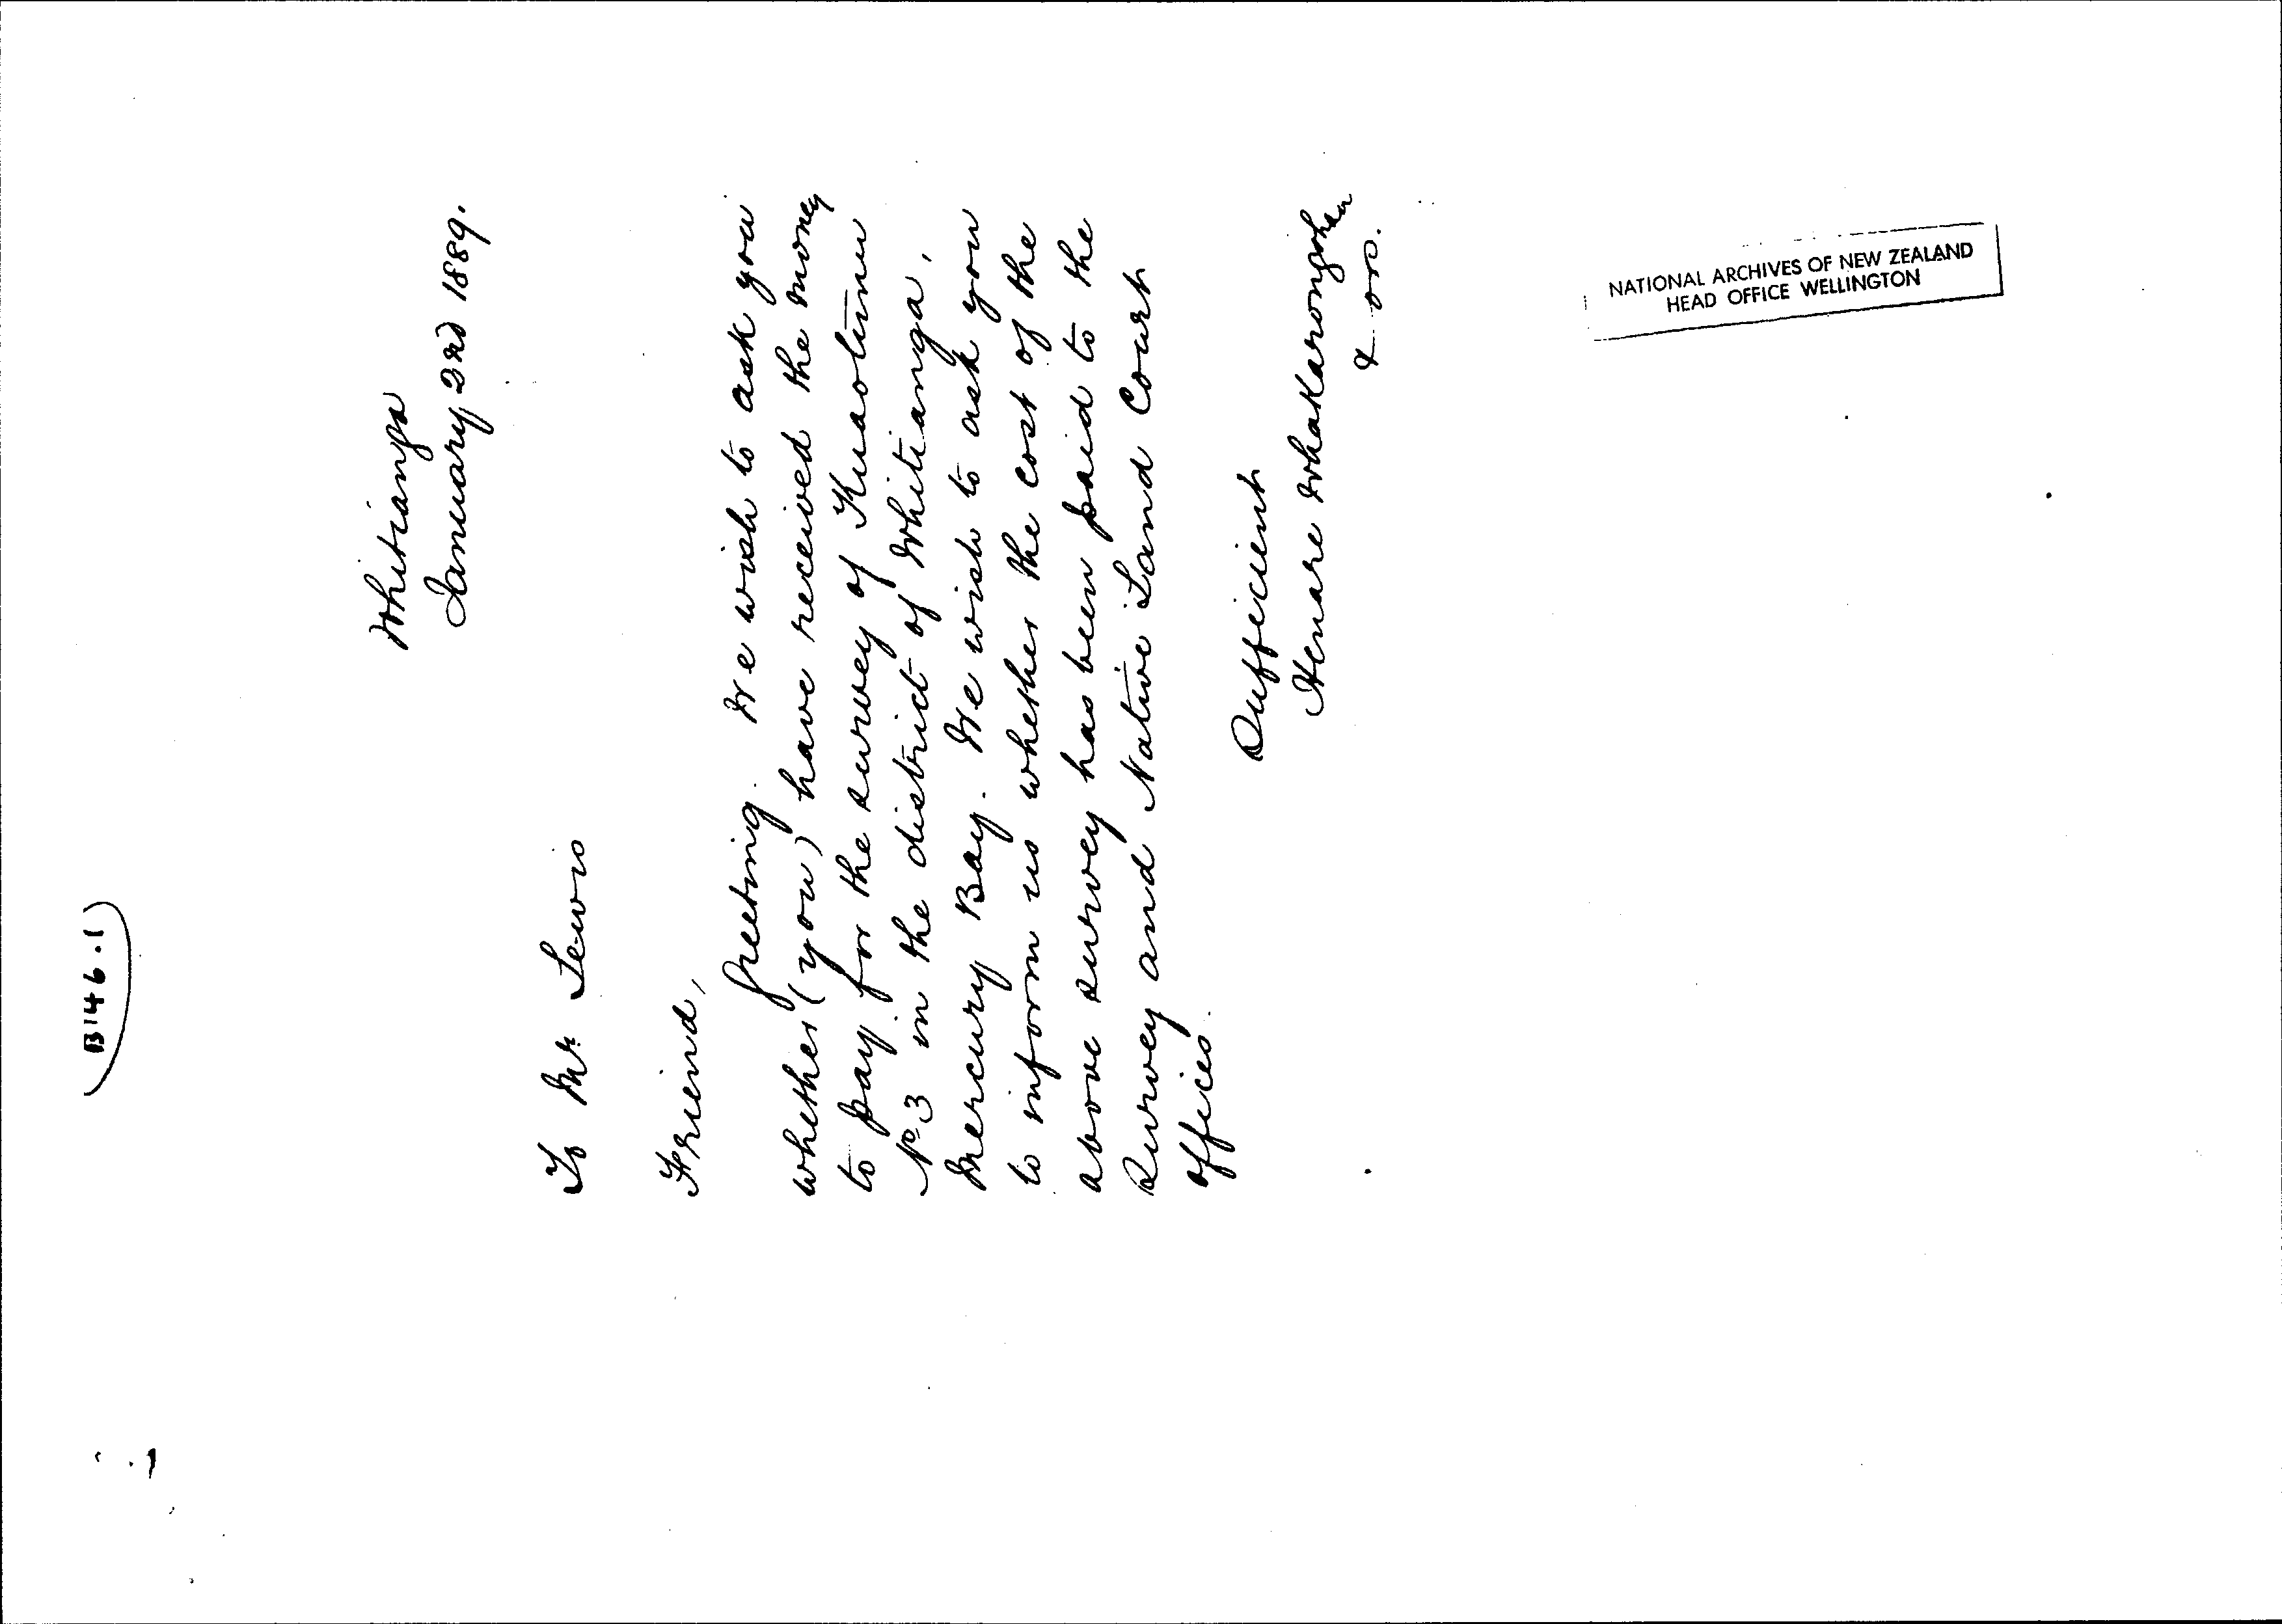 B146.1
Whitianga
January 2nd 1889.
To Mr. Lewis
Friend,
Greeting. We wish to ask you
whether (you) have received the money
to pay for the survey of Kuaotunu
No. 3 in the district of Whitianga,
Mercury Bay. We wish to ask you
to inform us whether the cost of the
above survey has been paid to the
Survey and Native Land Court
offices.
Sufficient
Henare Whakarongohau
& ors.
NATIONAL ARCHIVES OF NEW ZEALAND
HEAD OFFICE WELLINGTON